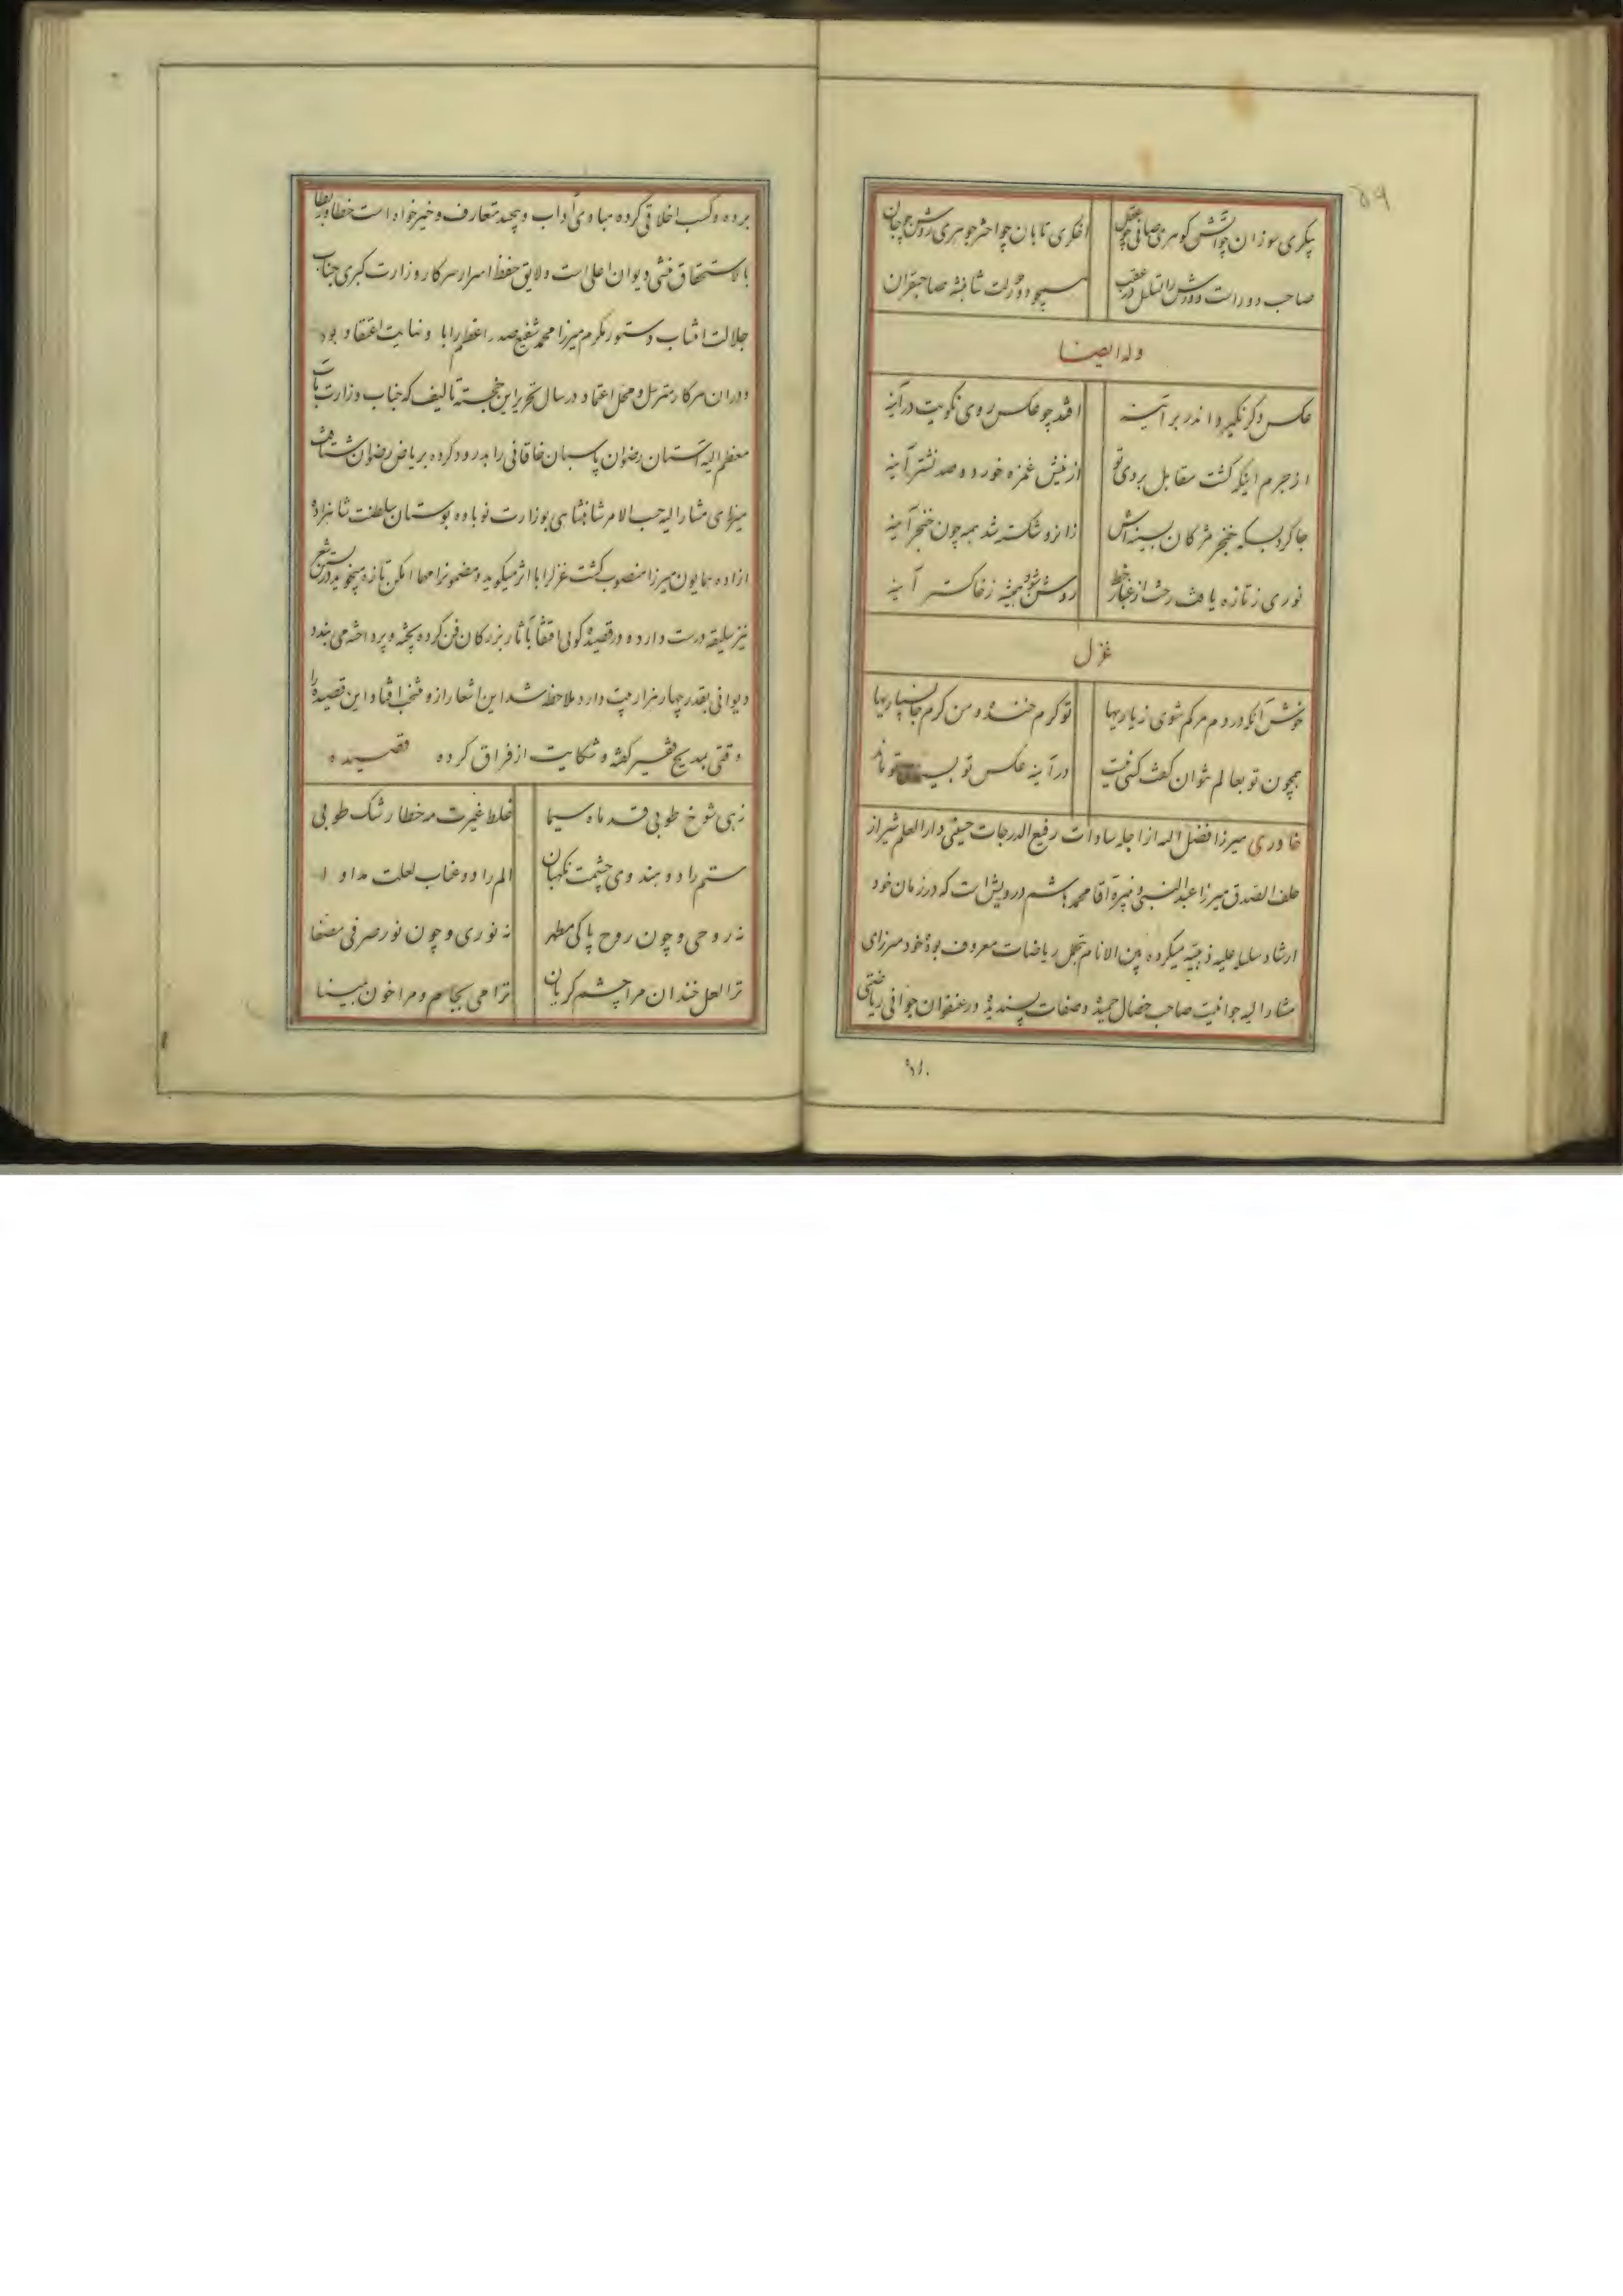 ۵۹
پیکری سوزان چو آتش گوهری صافی چو عقل اخگری تابان چو اختر جوهری روشن چو جان
صاحب دورانست و دورش را تسلسل در عقب همچو دور دولت شاهنشه صاحبقران
وله ایضا
عکس دگر نگیرد اندر بر آینه افتد چو عکس روی نکویت در آینه
از جرم اینکه گشت مقابل بروی تو از نیش غمزه خورد دو صد نشتر آینه
جا کرد بسکه خنجر مژگان بسینه‌اش زانرو شکسته شد همه چون خنجر آینه
نوری ز تازه یافت رخت از غبار خط روشن شود همیشه ز خاکستر آینه
غزل
خوش آنکه در دم مرگم شوی ز یاریها تو گرم خنده و من گرم جانسپاریها
همچون تو بعالم نتوان گفت کسی نیست در آینه عکس تو بسی تو ماند
خاوری میرزا فضل الله از اجله سادات رفیع الدرجات حسینی دارالعلم شیراز
خلف الصدق میرزا عبدالنبی و نبیره آقا محمد هاشم درویش است که در زمان خود
ارشاد سلسله علیه ذهبیه میکرده بین الانام بتحمل ریاضات معروف بوده خود میرزای
مشارالیه جوانیست صاحب خصال حمیده و صفات پسندیده در عنفوان جوانی ریاضتی
برده و کسب اخلاقی کرده مبادی آداب و بیحد متعارف و خیرخواه است خطا و ربطا
بالاستحقاق منشی دیوان اعلی است و لایق حفظ اسرار سرکار وزارت کبری جناب
جلالت انتساب دستور مکرم میرزا محمد شفیع صدر اعظم را با و نهایت اعتقاد بود
و در ان سرکار مترسل و محل اعتماد در سال تحریر این خجسته تألیف که جناب وزارت مآب
معظم الیه آستان رضوان پاسبان خاقانی را بدرود کرده بریاض رضوان شتافت
میرزای مشارالیه حسب الامر شاهنشاهی بوزارت نوباوه بوستان سلطنت شاهزاده
ازاده همایون میرزا منصوب گشت غزلرا با اثر میگوید و مضمونرا مهما امکن تازه میجوید در نثر
نیز سلیقه درست دارد و در قصیده گوئی اقتفا بآثار بزرگان فن کرده پخته و پرداخته می بندد
دیوانی بقدر چهار هزار بیت دارد ملاحظه شد این اشعار ازو منتخب افتاد این قصیده را
وقتی بمدیح فقیر گفته و شکایت از فراق کرده قصیده
زهی شوخ طوبی قد ماه سیما غلط غیرت مه خطا رشک طوبی
ستم را دو هندوی چشمت نگهبان الم را دو عناب لعلت مداوا
نه روحی و چون روح پاکی مطهر نه نوری و چون نور صرفی مصفا
ترا لعل خندان مرا چشم گریان ترا می بجام و مرا خون بمینا